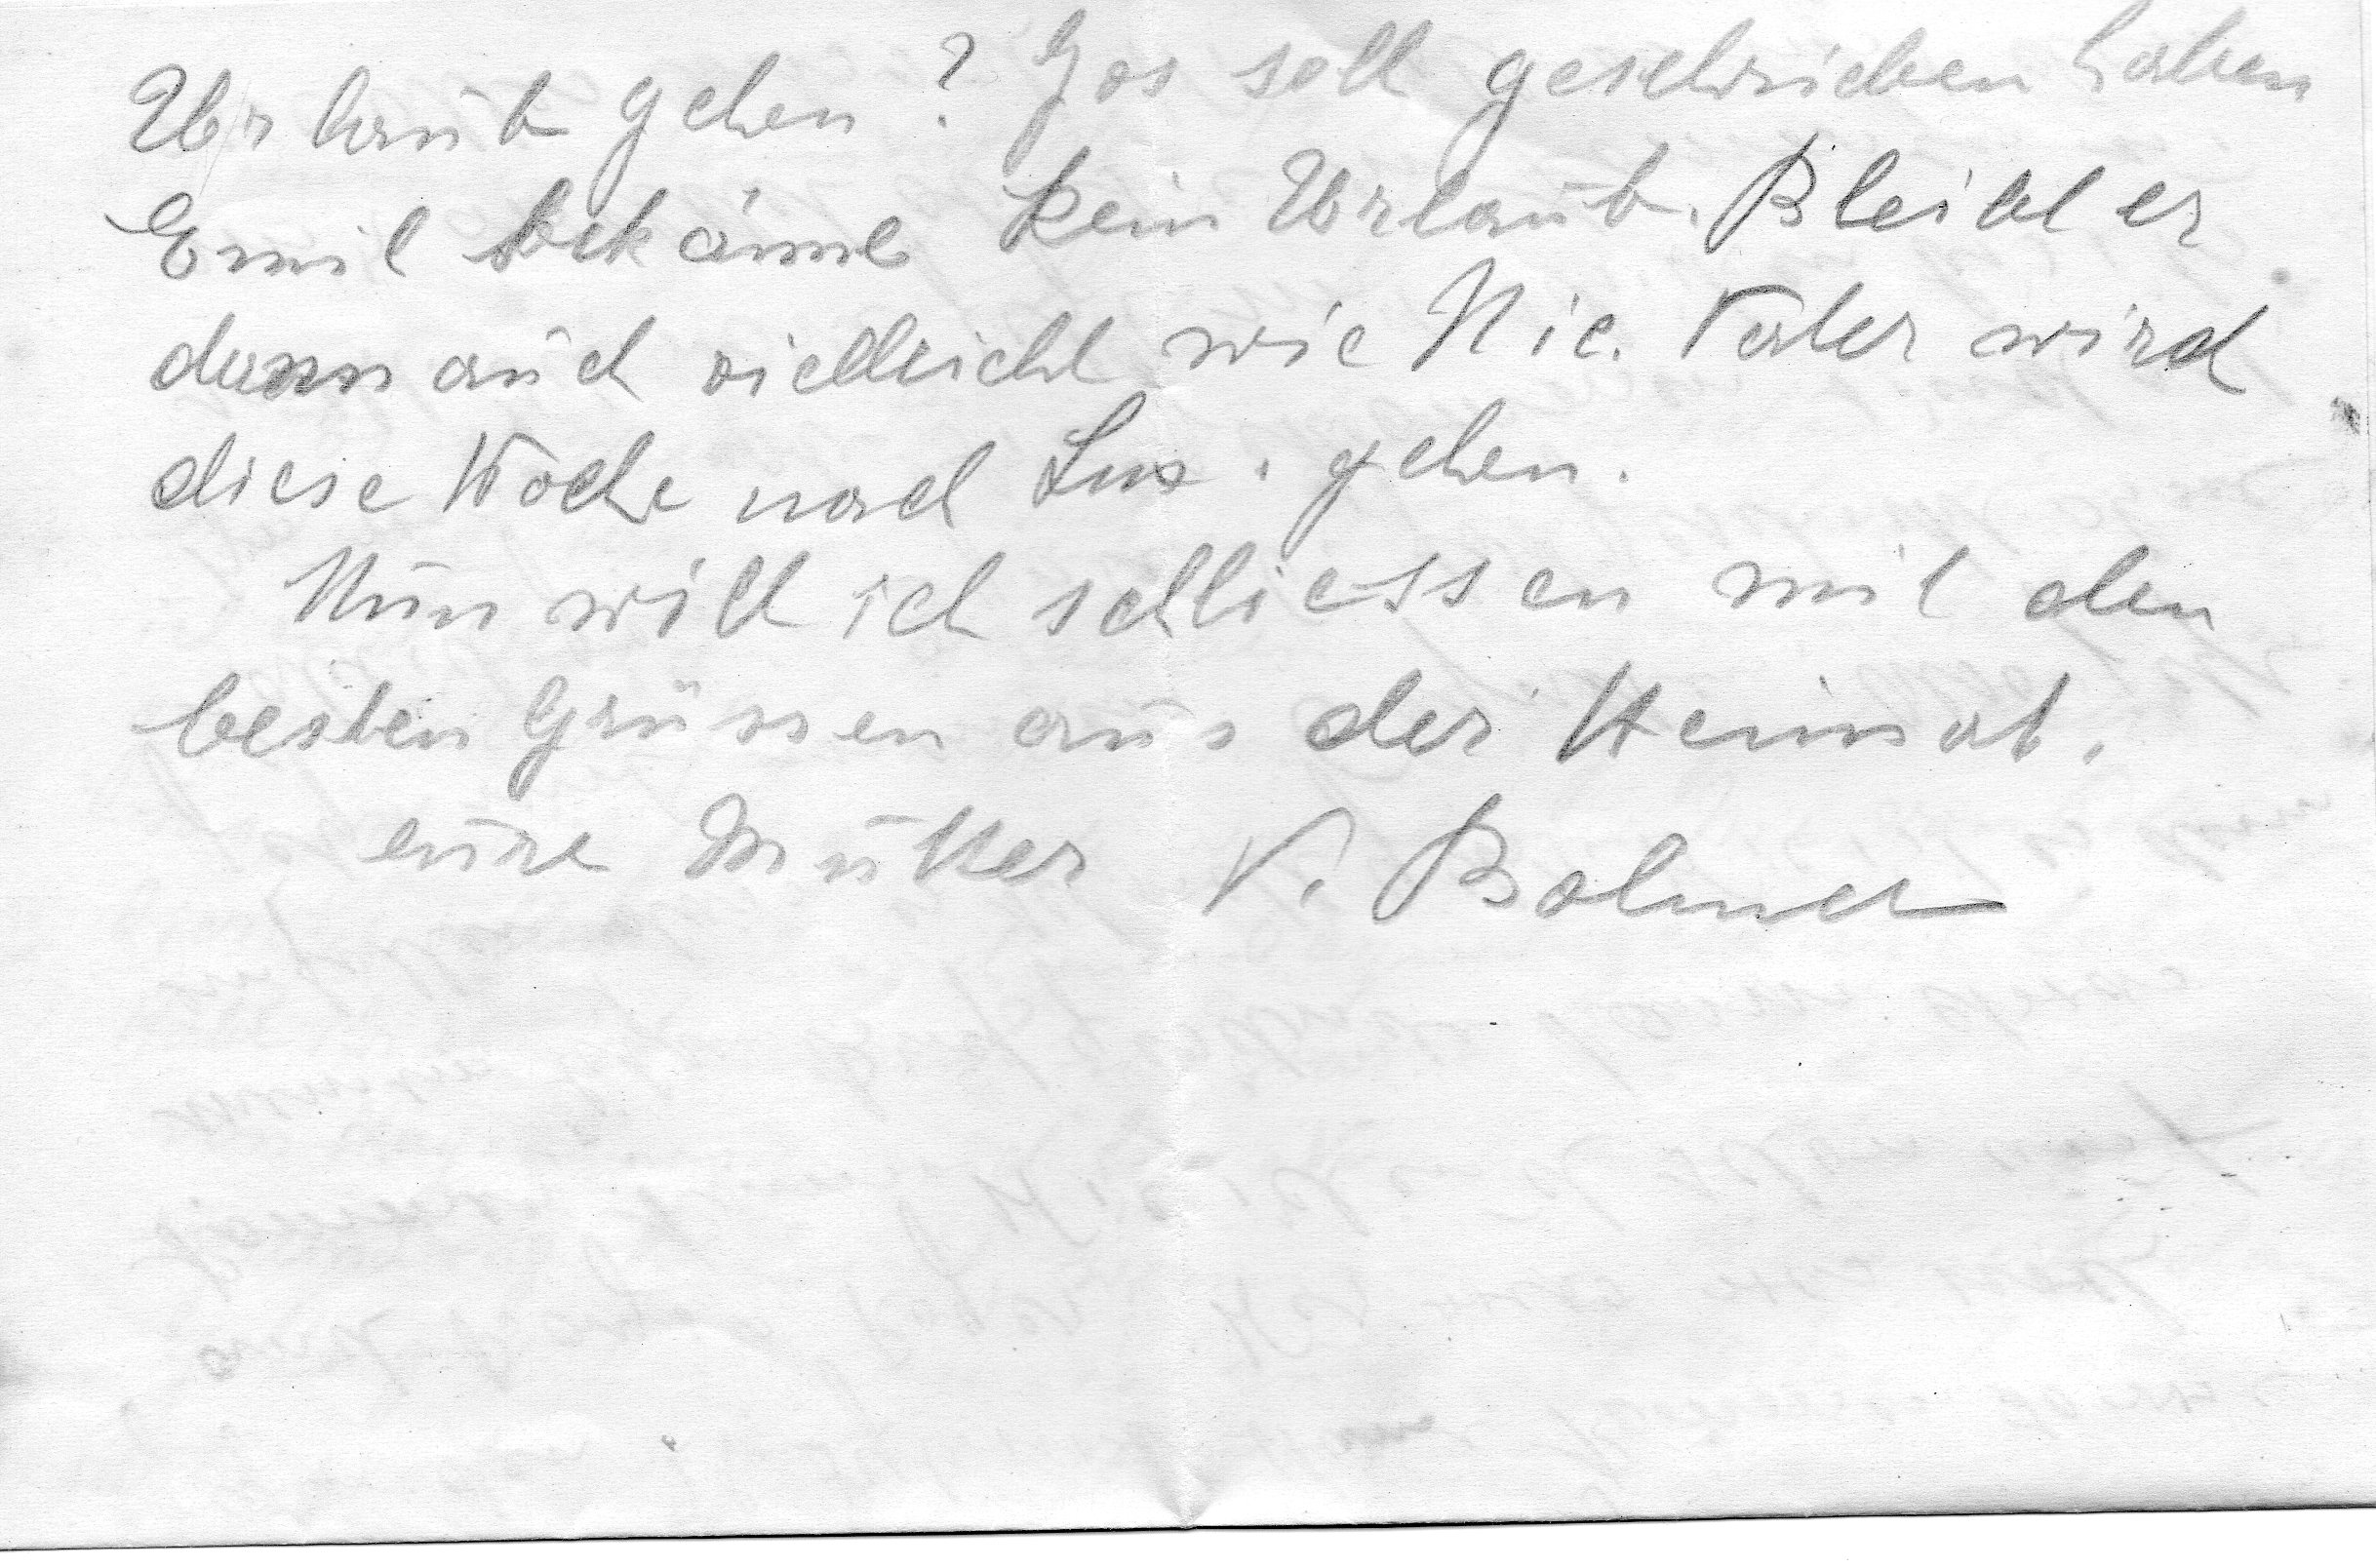 Urlaub gehen? Jos soll geschrieben haben
Emil bekäme kein Urlaub. Bleibt er
dann auch vielleicht wie Nic. Vater wird
diese Woche nach Lux. gehen.
Nun will ich schliessen mit den
besten Grüssen aus der Heimat.
eure Mutter V. Bolmer